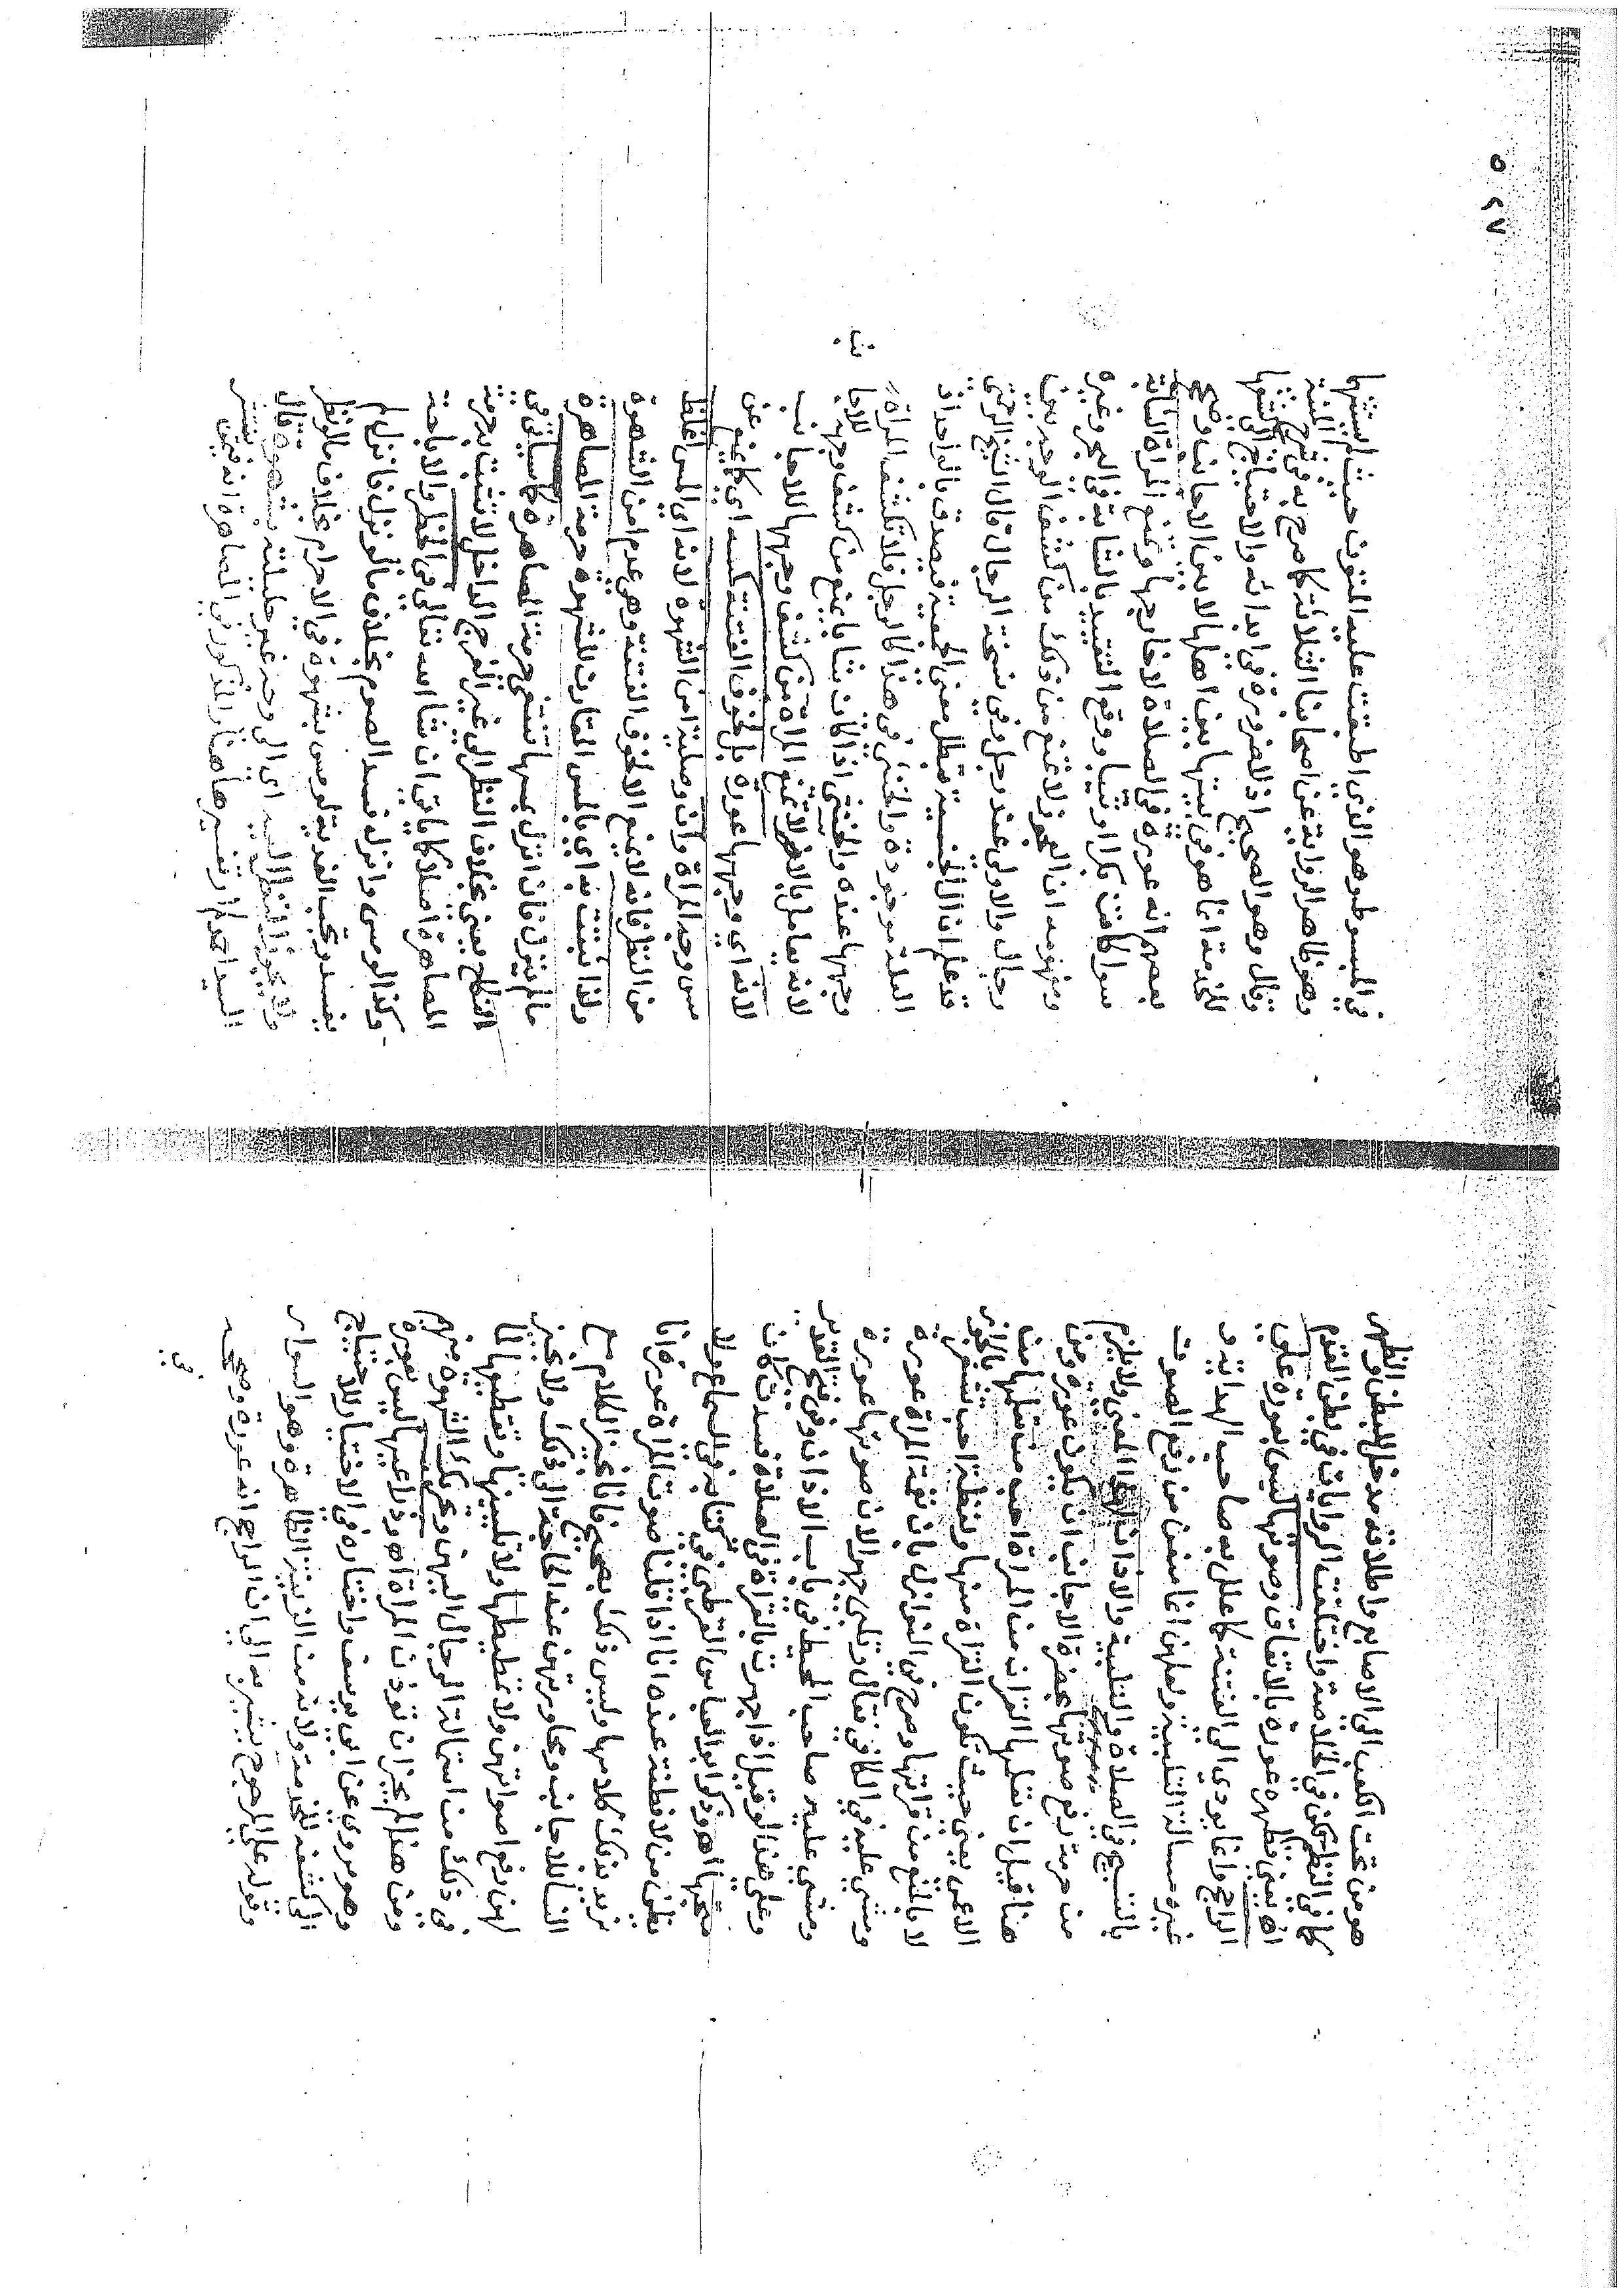 هو من تحت الكعب الى الاصابع واطلاقه مدخل للبطن والظهر
كما في النظم لكن في الخلاصة واختلفت الروايات في بطن القدم
اه يعني ظهره عورة بالاتفاق وصوتها ليس بعورة على
الراجح وانما يودي الى الفتنة كما علل به صاحب الهداية و
غيره مسالة التلبية ولعلهن انما منعن من رفع الصوت
بالتسبيح في الصلاة والتلبية والاذان لهذا المعنى ولا يلزم
من حرمة رفع صوتها بحضرة الاجانب ان يكون عورة ومن
هنا قيل ان تعلمها القران من المراة احب من تعلمها من
الاعمى يعني حيث تكون القراة منها ولفظة احب تشعر بالجواز
لا بالمنع من قراتها وصرح في النوازل بان نغمة المراة عورة
ومشى عليه في الكافي فقال وتلبي جهرا لان صوتها عورة
ومشى عليه صاحب المحيط في باب الاذان وفي فتح القدير
وعلى هذا لو قيل اذا جهرت بالقراة في الصلاة فسدت كان
متجها اه وذكر ابو العباس القرطبي في كتابه في السماع ولا
يظن من لا فطنة عنده انا اذا قلنا صوت المراة عورة انا
نريد بذلك كلامها وليس ذلك بصحيح فانا نجيز الكلام مع
النسا للاجانب ومحاورتهن عند الحاجة الى ذلك ولا نجيز
لهن رفع اصواتهن ولا تمطيطها ولا تليينها وتقطيعها لما
في ذلك من استمالة الرجال اليهن وتحريك الشهوة منهم
ومن هذا لم يجز ان تؤذن المراة اه وذراعيها ليس بعورة
وهو مروي عن ابي يوسف واختاره في الاختيار للاحتياج
الى كشفه للخدمة ولانه من الزينة الظاهرة وهو السوار
وقوله على المرجوح يشير به الى ان الراجح انه عورة وصححه
في
في المبسوط وهو الذي اطبقت عليه المتون حيث لم يستثنها
وهو ظاهر الرواية عن اصحابنا الثلاثة كما صرح به في شرح المنية
وقال وهو الصحيح اذ لا ضرورة في ابدائه والاحتياج الى كشفها
للخدمة انما هو في بيتها بين اهلها لا بين الاجانب وصحح
بعضهم انه عورة في الصلاة لا خارجها وتمنع المراة الشابة
سوا كانت بكرا او ثيبا ووقع التقييد بالشابة في البحر وغيره
ومفهومه ان العجوز لا تمنع من ذلك من كشف الوجه بين
رجال والاولى عند رجل وفي نسخة الرجال قال الشيخ الرحمتي
قد علم ان ال الجنسية تبطل معنى الجمعية فيصدق بالواحد اذ
العلة موجودة والخنثى في هذا كالرجل فلا تكشف المراة
وجهها عنده والخنثى اذا كان شابا يمنع من كشف وجهه للاجا
لانه يعامل بالاضر لا تمنع المراة من كشف وجهها للاجانب
لانه اي وجهها عورة بل لخوف الفتنة كمسه اي كما يمنع عن
مس وجه المراة وان وصلية امن الشهوة لانه اي المس اغلظ
من النظر فانه لا يمنع الا لخوف الفتنة وهي عدم امن الشهوة
ولذا ثبتت به اي بالمس المقارن للشهوة حرمة المصاهرة
ما لم ينزل فان انزل بمسها تنتفي حرمة المصاهرة كما سياتي في
النكاح يعني بخلاف النظر الى غير الفرج الداخل لا تثبت به حرمة
المصاهرة اصلا كما ياتي ان شا الله تعالى في الحظر والاباحة
وكذا لو مس وانزل فسد الصوم بخلاف ما لو نزل فانزل لم
يفسد وتجب الفدية لو مس بشهوة في الاحرام بخلاف ما لو نظر
ولا يجوز النظر اليه اي الى وجه غير حليلته بشهوة قال
السيد احمد